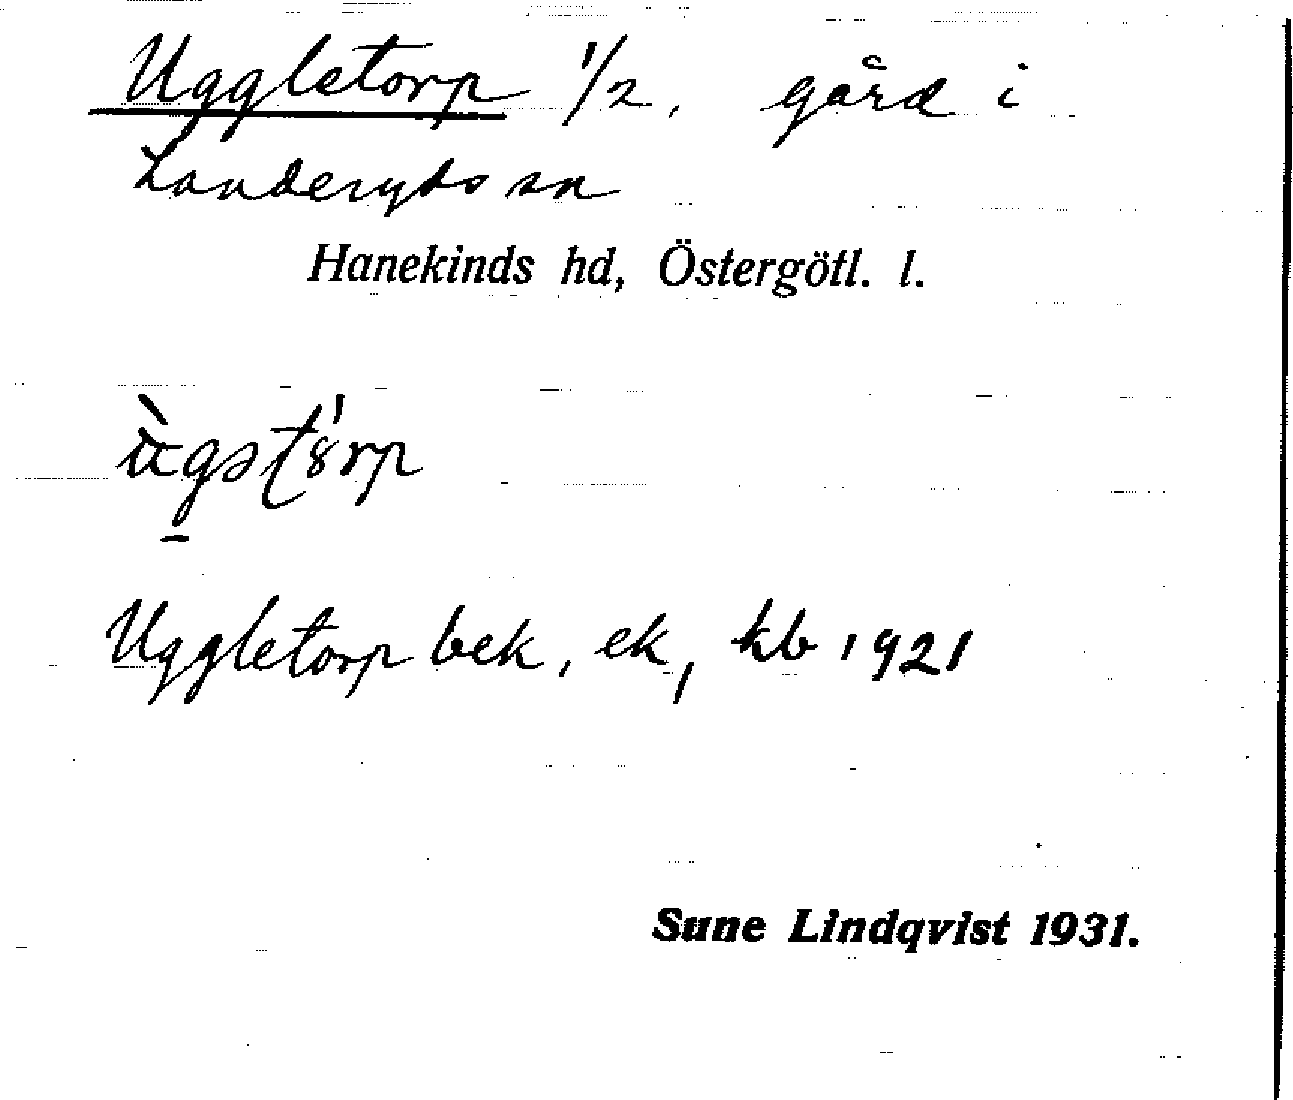 Uggletorp 1/2, gård i
Landeryds sn
Hanekinds hd, Östergötl. l.
Uggletorp bek, ek, kb 1921
Sune Lindqvist 1931.